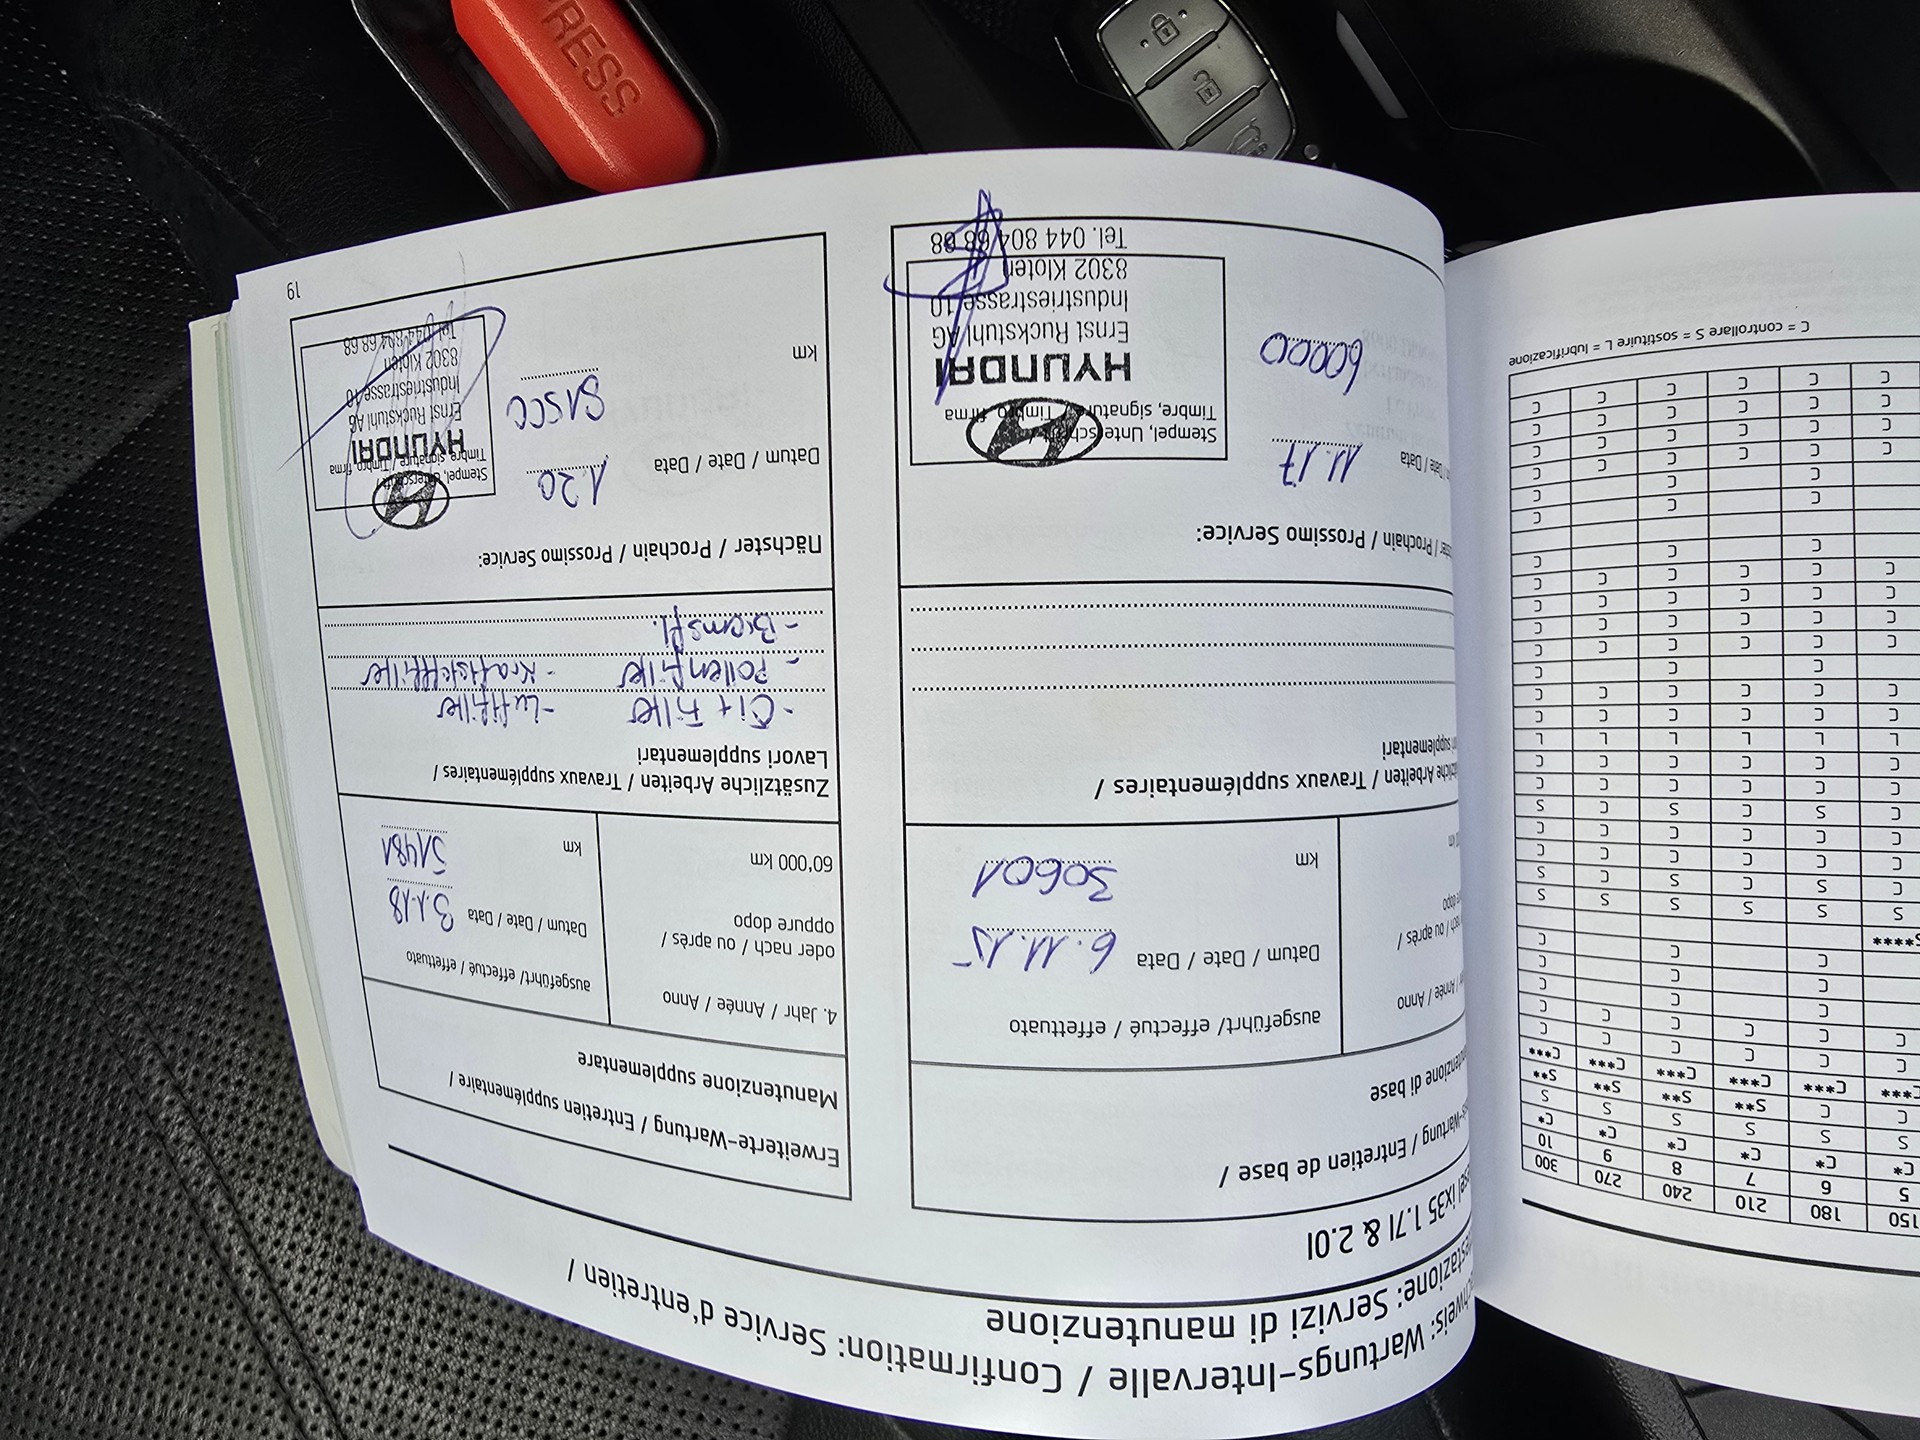 PRESS
chweis: Wartungs-Intervalle / Confirmation: Service d'entretien /
estazione: Servizi di manutenzione
esel ix35 1.7l & 2.0l
s-Wartung / Entretien de base /
utenzione di base
/ Année / Anno
nach / ou après /
re dopo
km
ausgeführt/ effectué / effettuato
Datum / Date / Data 6.11.15
km 30601
zliche Arbeiten / Travaux supplémentaires /
ri supplementari
ster / Prochain / Prossimo Service:
/ Date / Data 11.17
60000
Stempel, Unterschrift /
Timbre, signature / Timbro, firma
HYUNDAI
Ernst Ruckstuhl AG
Industriestrasse 10
8302 Kloten
Tel. 044 804 68 68
Erweiterte-Wartung / Entretien supplémentaire /
Manutenzione supplementare
4. Jahr / Année / Anno
oder nach / ou après /
oppure dopo
60'000 km
ausgeführt/ effectué / effettuato
Datum / Date / Data 3.1.18
km 51481
Zusätzliche Arbeiten / Travaux supplémentaires /
Lavori supplementari
- Öl + Filter - Luftfilter
- Pollenfilter - Kraftstofffilter
- Bremsfl.
Nächster / Prochain / Prossimo Service:
Datum / Date / Data 1.20
km 81500
Stempel, Unterschrift /
Timbre, signature / Timbro, firma
HYUNDAI
Ernst Ruckstuhl AG
Industriestrasse 10
8302 Kloten
Tel. 044 804 68 68
19
150 180 210 240 270 300
5 6 7 8 9 10
C* C* C* C* C* C*
S S S S S S
C C S** S** S** S**
C*** C*** C*** C*** C*** C***
C = controllare S = sostituire L = lubrificazione